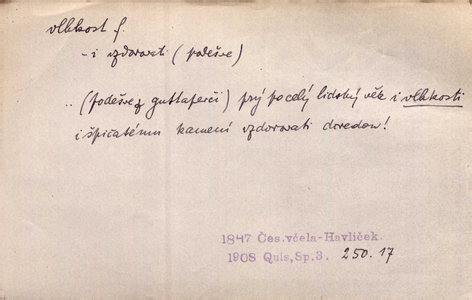 vlhkost f.
-i vzdorovati (podešve)
.. (podešve guttaperči) prý po celý lidský věk i vlhkosti
i špičatému kamení vzdorovati dovedou!
1847 Čes.včela-Havlíček.
1908 Quis, Sp.3. 250.17